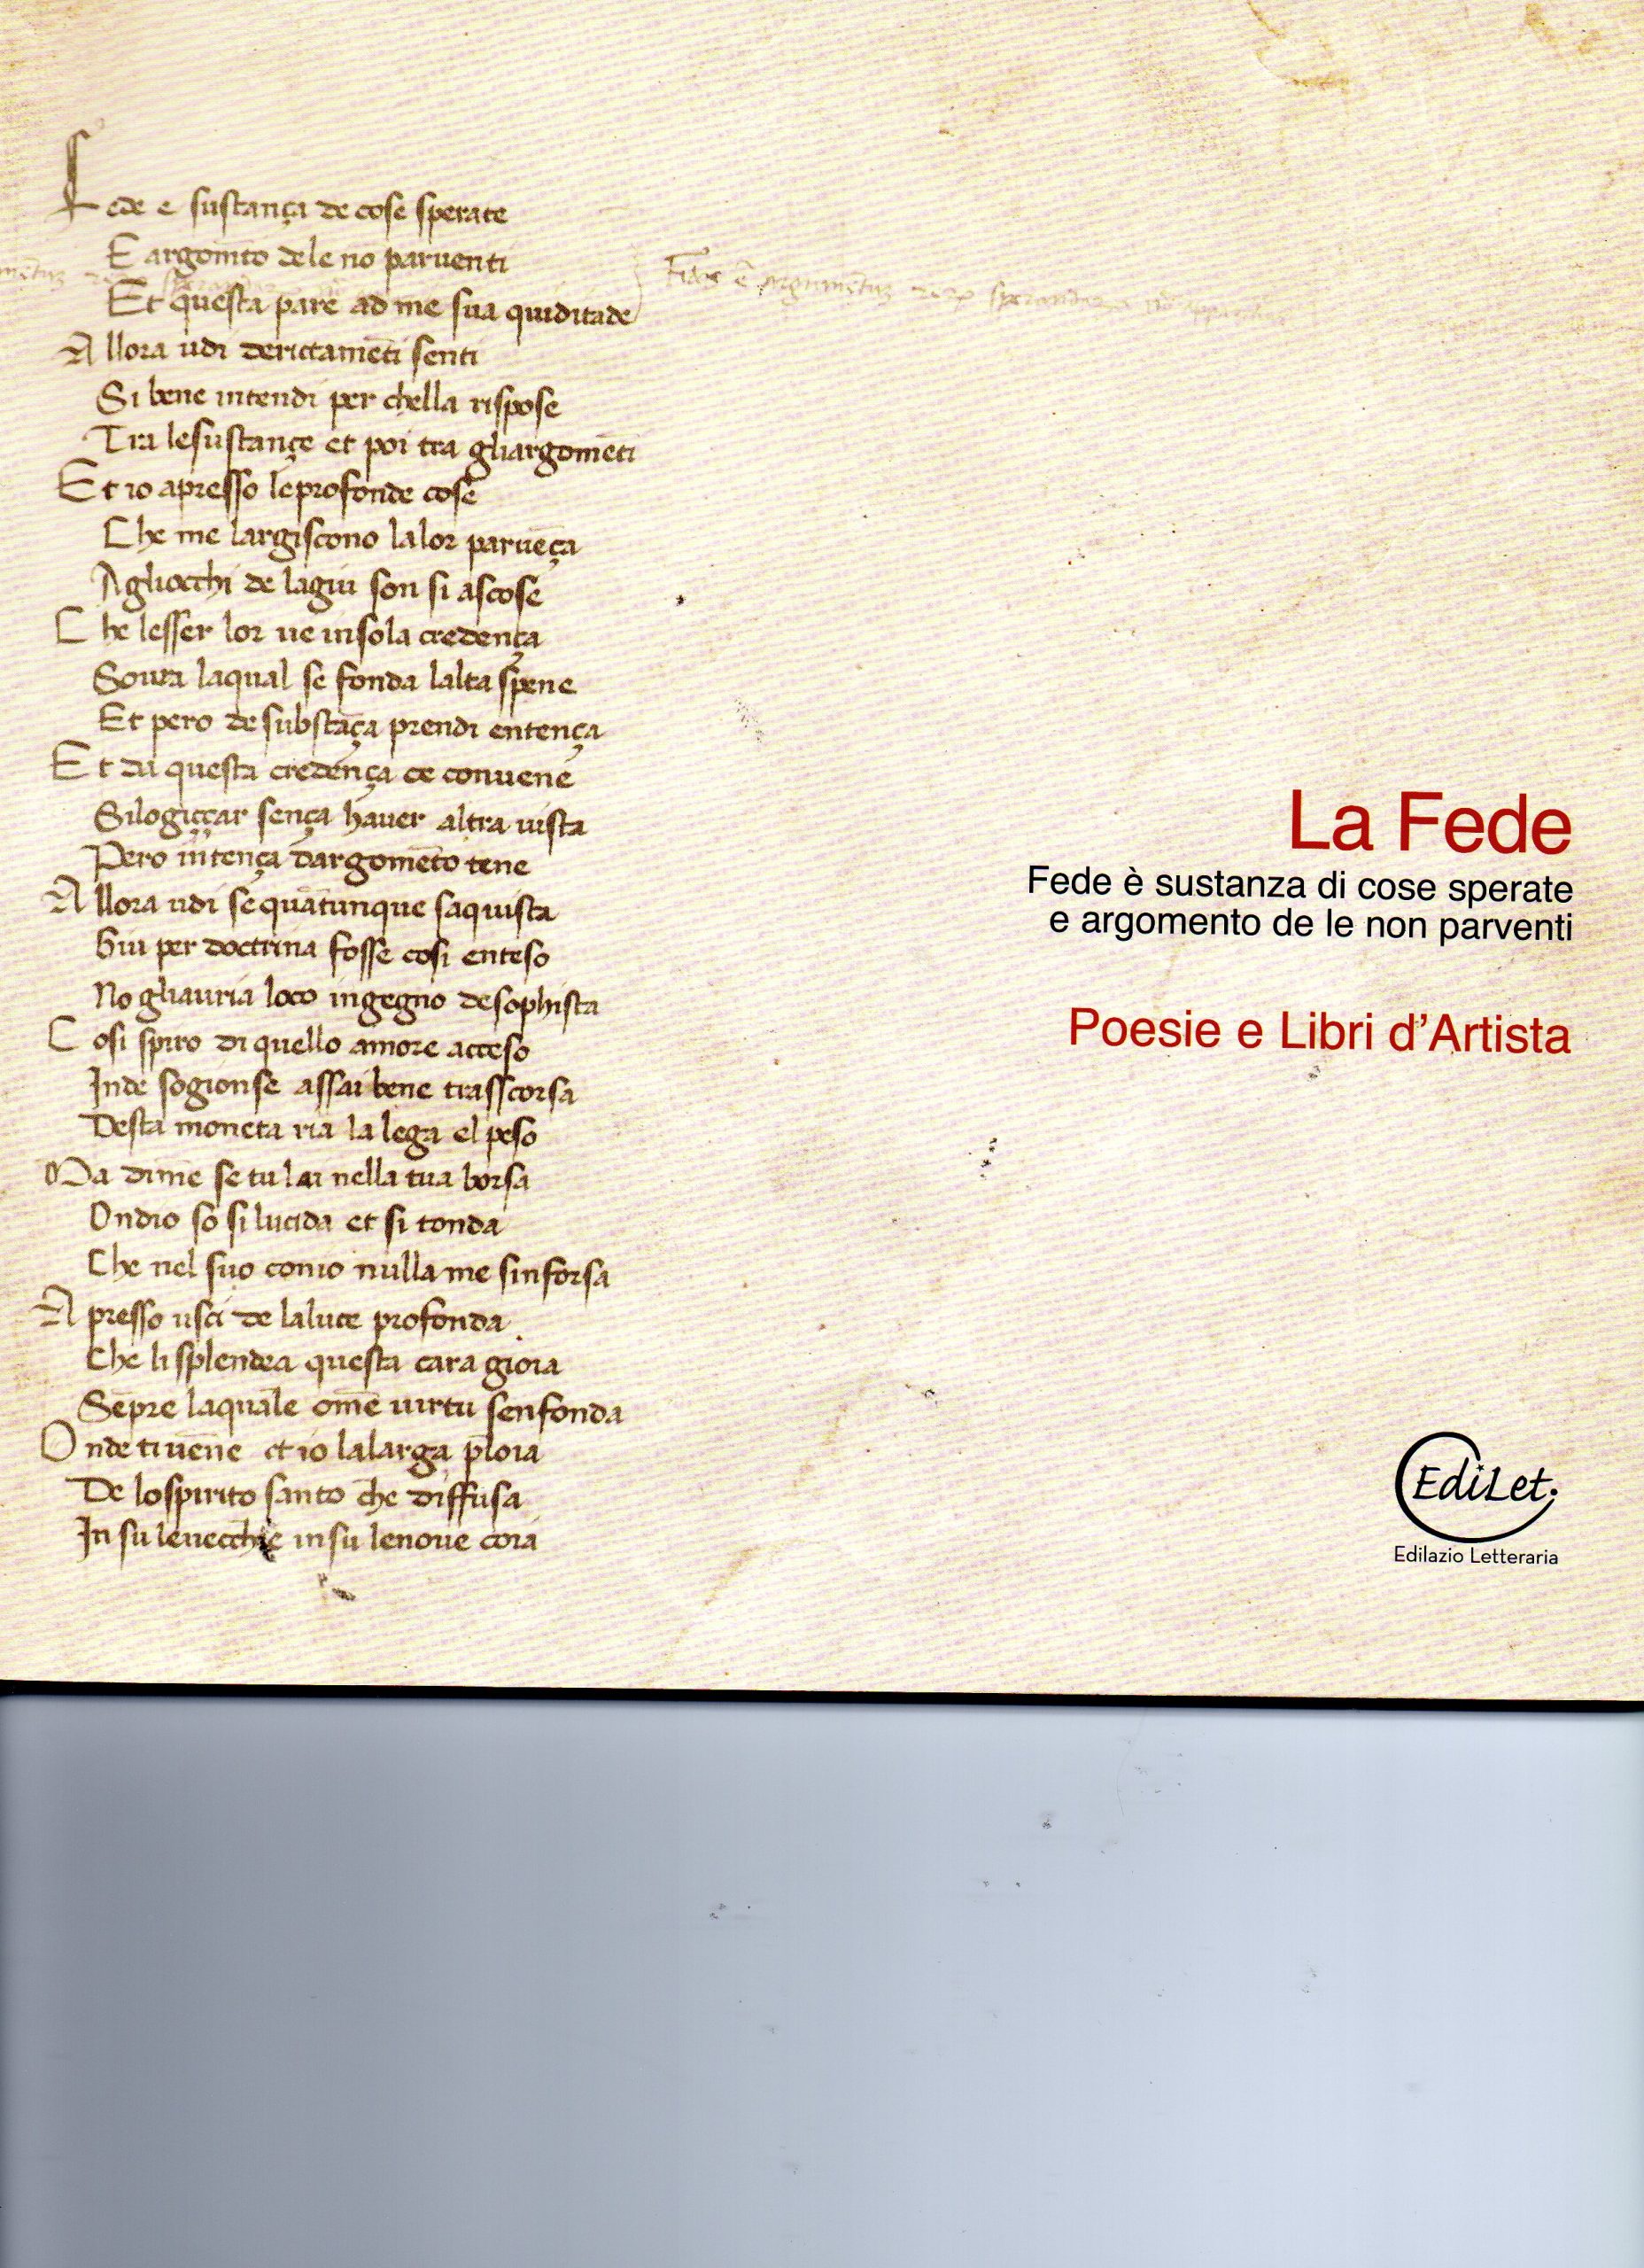 Fede e sustança de cose sperate
E argom̅to dele no paruenti
Et questa pare ad me sua quiditade
Allora udi derictamēti senti
Si bene intendi per chella rispose
Tra lesustançe et poi tra gliargomēti
Et io apresso leprofonde cose
Che me largiscono lalor paruēça
Agliocchi de lagiu son si ascose
Che lesser lor ue insola credença
Soura laqual se fonda lalta spene
Et pero de substāça prendi entença
Et da questa credença ce conuene
Silogiççar sença hauer altra uista
Pero intença dargomēto tene
Allora udi se quātunque saquista
Giu per doctrina fosse cosi enteso
No gliauria loco ingegno desophista
Cosi spiro di quello amore acceso
Inde sogionse assai bene trasscorsa
Desta moneta ria la lega el peso
Ma dime se tu lai nella tua borsa
Ondio so si lucida et si tonda
Che nel suo conio nulla me sinforsa
Apresso usci de laluce profonda
Che li splendea questa cara gioia
Sēpre laquale omē uirtu senfonda
Onde ti uene et io lalarga ploia
De lospirito santo che diffusa
In su leuecchie insu lenoue coia
Fides ē argumētuz sperandaz
La Fede
Fede è sustanza di cose sperate
e argomento de le non parventi
Poesie e Libri d'Artista
EdiLet.
Edilazio Letteraria